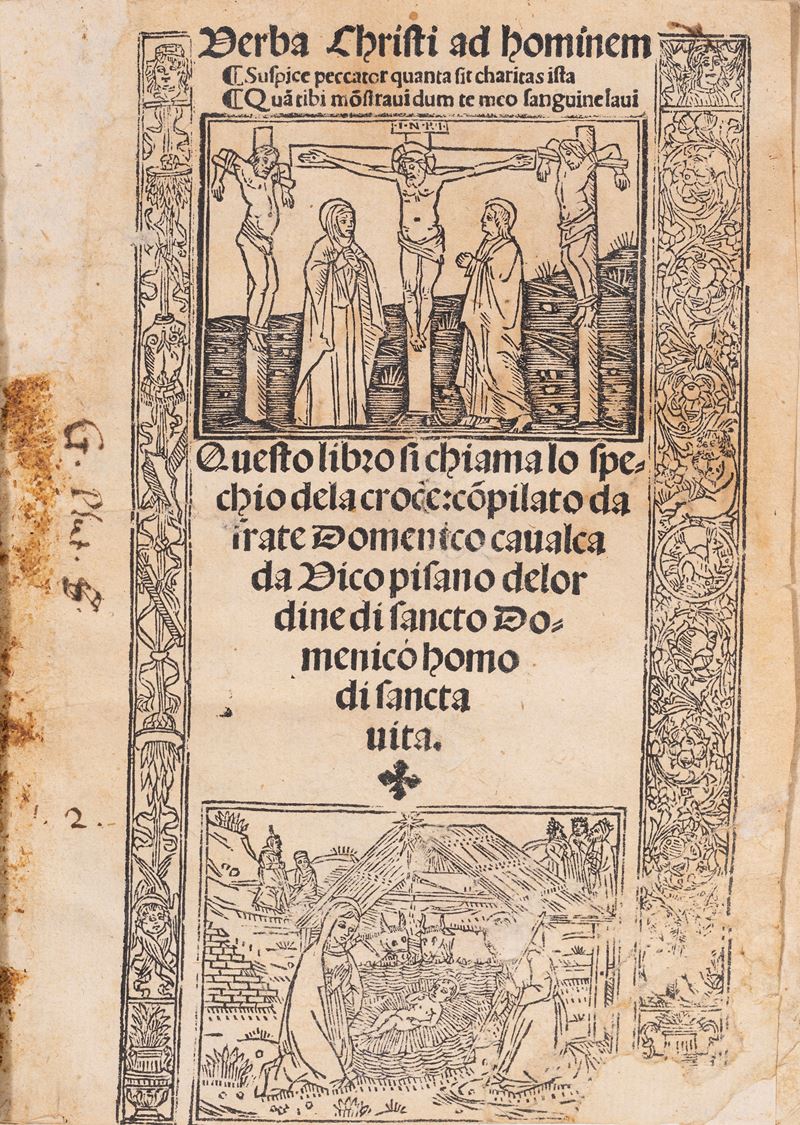 Verba Christi ad hominem
¶ Suspice peccator quanta sit charitas ista
¶ Quā tibi mōstraui dum te meo sanguine laui
I.N.R.I.
Questo libro si chiama lo spe⸗
chio de la croce: cōpilato da
frate Domenico caualca
da Vico pisano del or
dine di sancto Do⸗
menico homo
di sancta
uita.
G. Plut. 8.
2.